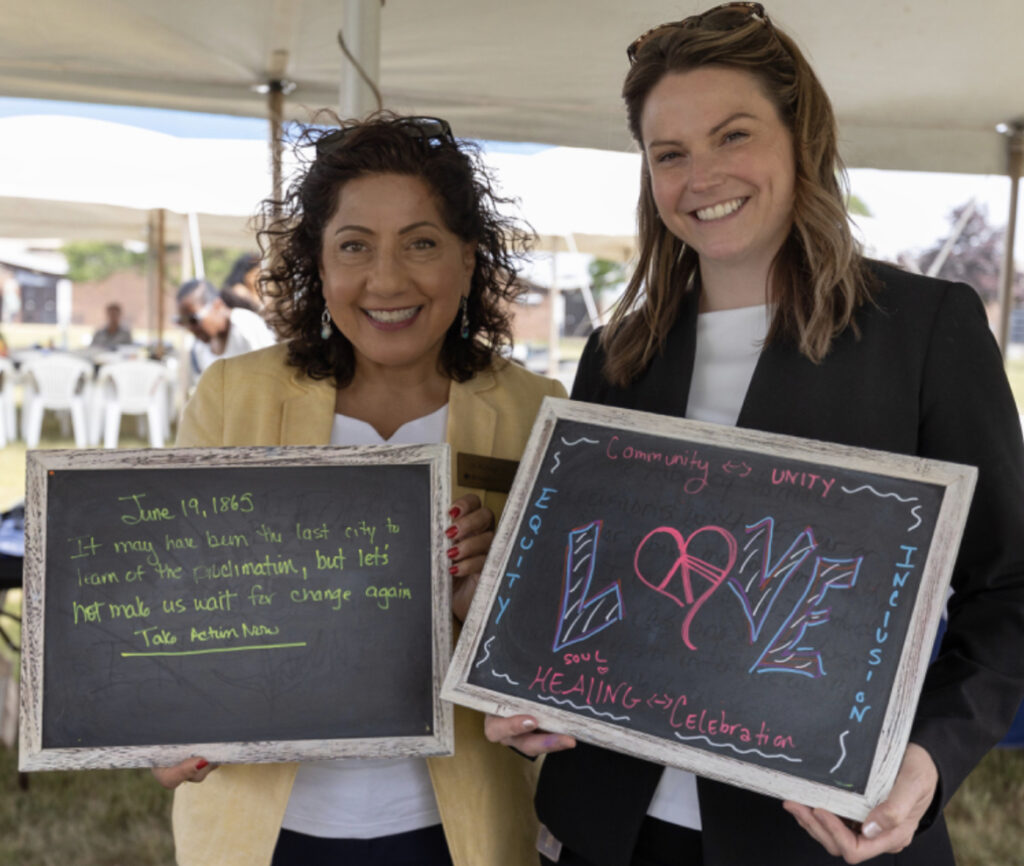 June 19, 1865
It may have been the last city to
learn of the proclimation, but let's
not make us wait for change again
Take Action Now
Community <-> UNITY
EQUITY
LOVE
INCLUSION
SOUL
HEALING <-> Celebration